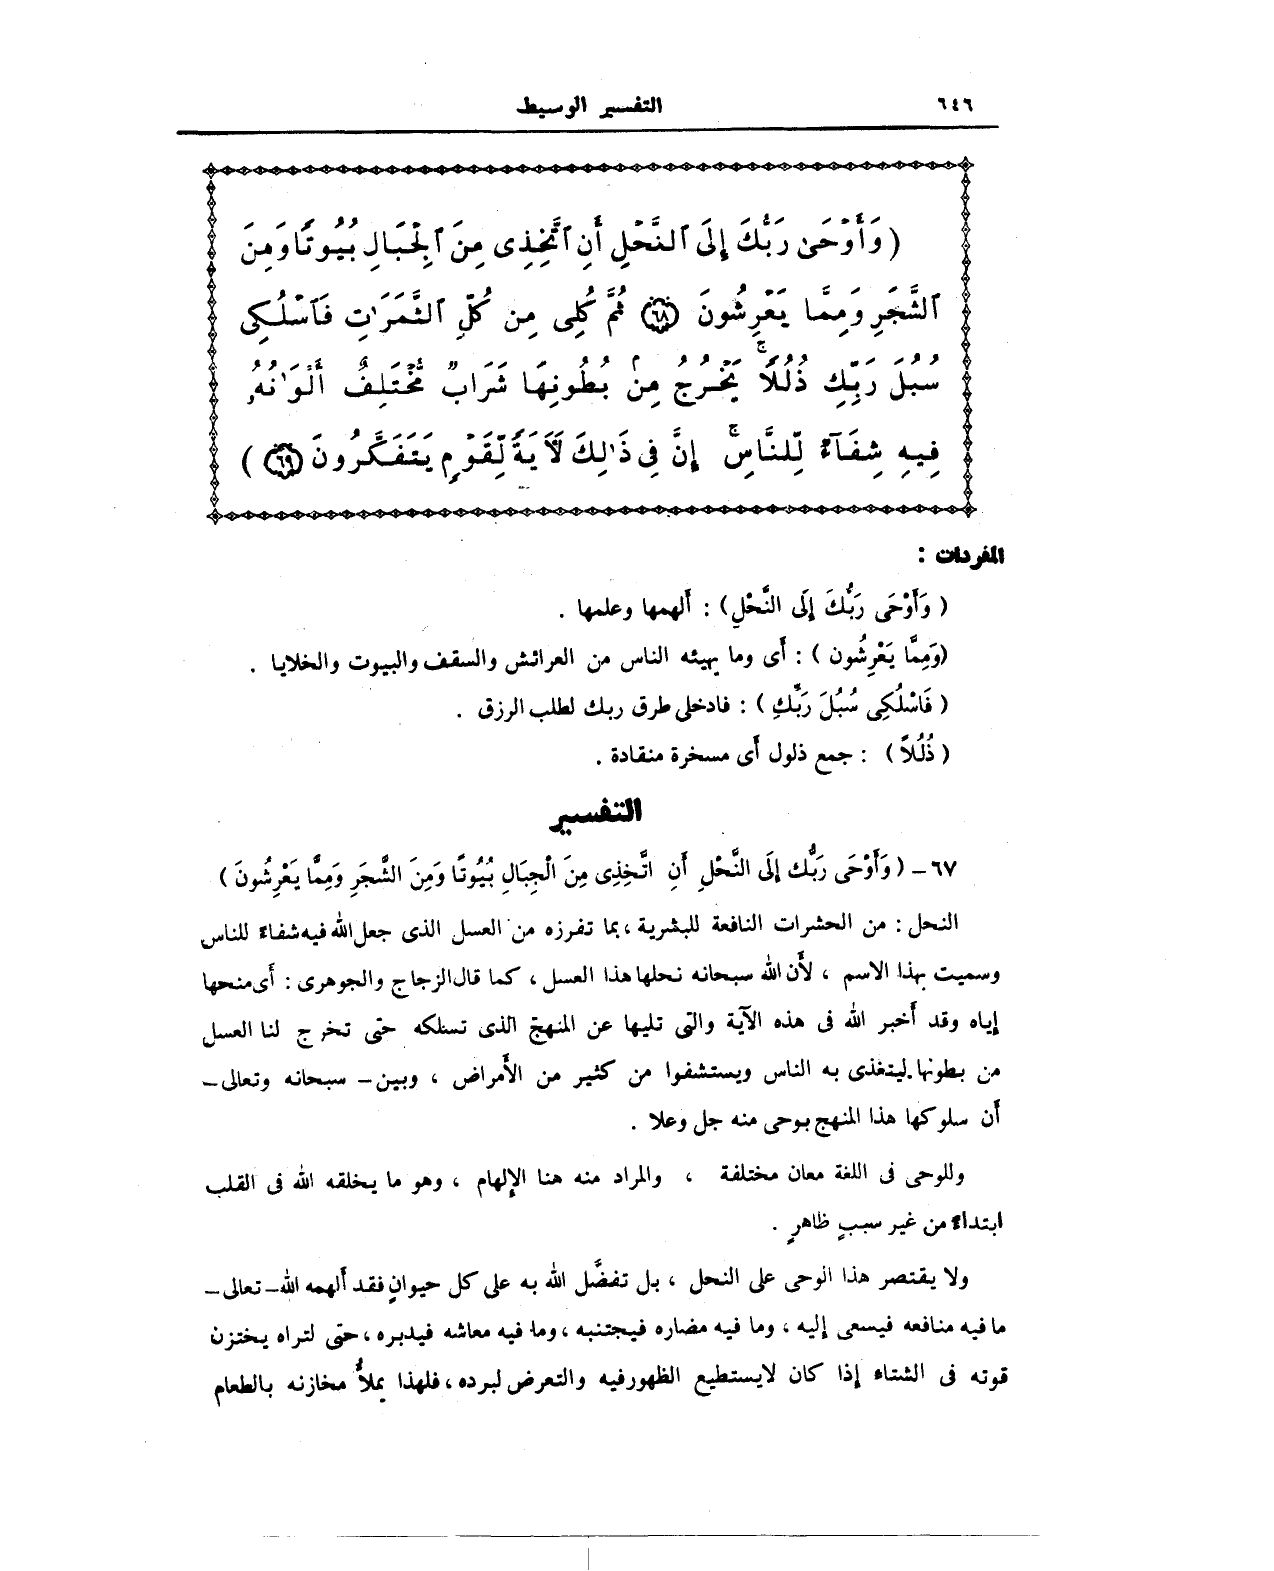 ٦٤٦ التفسير الوسيط
( وَأَوْحَىٰ رَبُّكَ إِلَى ٱلنَّحْلِ أَنِ ٱتَّخِذِى مِنَ ٱلْجِبَالِ بُيُوتًا وَمِنَ
ٱلشَّجَرِ وَمِمَّا يَعْرِشُونَ ۝٦٨ ثُمَّ كُلِى مِن كُلِّ ٱلثَّمَرَٰتِ فَٱسْلُكِى
سُبُلَ رَبِّكِ ذُلُلًا ۚ يَخْرُجُ مِنۢ بُطُونِهَا شَرَابٌ مُّخْتَلِفٌ أَلْوَٰنُهُۥ
فِيهِ شِفَآءٌ لِّلنَّاسِ ۚ إِنَّ فِى ذَٰلِكَ لَآيَةً لِّقَوْمٍ يَتَفَكَّرُونَ ۝٦٩ )
المفردات :
( وَأَوْحَى رَبُّكَ إِلَى النَّحْلِ ) : ألهمها وعلمها .
(وَمِمَّا يَعْرِشُون ) : أى وما يهيئه الناس من العرائش والسقف والبيوت والخلايا .
( فَاسْلُكِى سُبُلَ رَبِّكِ ) : فادخلى طرق ربك لطلب الرزق .
( ذُلُلاً ) : جمع ذلول أى مسخرة منقادة .
التفسير
٦٧ - ( وَأَوْحَى رَبُّكَ إِلَى النَّحْلِ أَنِ اتَّخِذِى مِنَ الْجِبَالِ بُيُوتًا وَمِنَ الشَّجَرِ وَمِمَّا يَعْرِشُونَ )
النحل : من الحشرات النافعة للبشرية ، بما تفرزه من العسل الذى جعل الله فيه شفاءً للناس
وسميت بهذا الاسم ، لأَن الله سبحانه نحلها هذا العسل ، كما قال الزجاج والجوهرى : أَى منحها
إياه وقد أَخبر الله فى هذه الآية والتى تليها عن المنهج الذى تسلكه حتى تخرج لنا العسل
من بطونها ليتغذى به الناس ويستشفوا من كثير من الأَمراض ، وبين - سبحانه وتعالى -
أَن سلوكها هذا المنهج بوحى منه جل وعلا .
وللوحى فى اللغة معان مختلفة ، والمراد منه هنا الإِلهام ، وهو ما يخلقه الله فى القلب
ابتداءً من غير سببٍ ظاهرٍ .
ولا يقتصر هذا الوحى على النحل ، بل تفضَّل الله به على كل حيوانٍ فقد أَلهمه الله - تعالى -
ما فيه منافعه فيسعى إليه ، وما فيه مضاره فيجتنبه ، وما فيه معاشه فيدبره ، حتى لتراه يختزن
قوته فى الشتاء إذا كان لا يستطيع الظهور فيه والتعرض لبرده ، فلهذا يملأُ مخازنه بالطعام